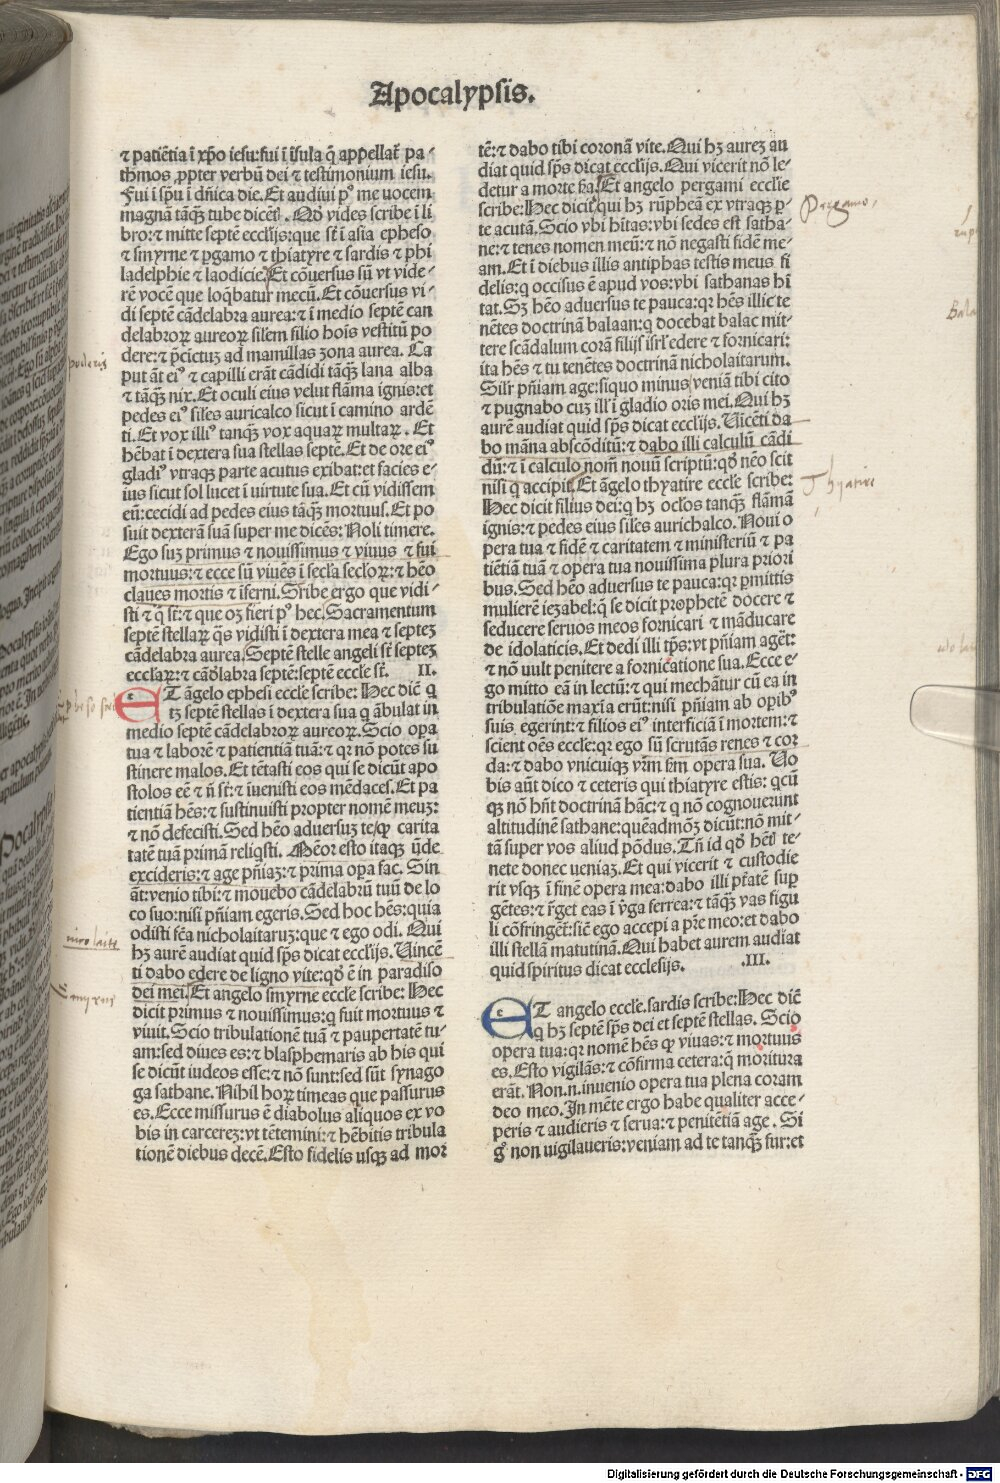 Apocalypsis.
⁊ patiētia ī xp̄o iesu:fui ī īsula q̄ appellat̄ pa⸗
thmos ꝓpter verbū dei ⁊ testimonium iesu.
Fui ī sp̄u ī dn̄ica die. Et audiui pꝰ me vocem
magnā tāqꝫ tube dicētꝭ. Qd̄ vides scribe ī li
bro:⁊ mitte septē eccl̄ijs:que st̄ ī asia epheso
⁊ smyrne ⁊ ꝑgamo ⁊ thiatyre ⁊ sardis ⁊ phi
ladelphie ⁊ laodicie. Et cōuersus sū vt vide⸗
rē vocē que loq̄batur mecū. Et cōuersus vi⸗
di septē cādelabra aurea:⁊ ī medio septē can
delabroꝝ aureoꝝ silem filio hoīs vestitū po
dere:⁊ p̄cictuꝫ ad mamillas zona aurea. Ca
put āt eiꝰ ⁊ capilli erāt cādidi tāqꝫ lana alba
⁊ tāqꝫ nix. Et oculi eius velut flāma ignis:et
pedes eiꝰ siles auricalco sicut ī camino ardē
ti. Et vox illiꝰ tanqꝫ vox aquaꝝ multaꝝ. Et
hēbat ī dextera sua stellas septē. Et de ore eiꝰ
gladiꝰ vtraqꝫ parte acutus exibat:et facies e⸗
ius sicut sol lucet ī virtute sua. Et cū vidissem
eū:cecidi ad pedes eius tāqꝫ mortuus. Et po
suit dexterā suā super me dicēs: Noli timere.
Ego suꝫ primus ⁊ nouissimus ⁊ viuus ⁊ fui
mortuus:⁊ ecce sū viuēs ī secla secloꝝ:⁊ hēo
claues mortis ⁊ īferni. Scribe ergo que vidi⸗
sti ⁊ q̄ st̄:⁊ que oꝫ fieri pꝰ hec. Sacramentum
septē stellaꝝ q̄s vidisti ī dextera mea ⁊ septeꝫ
cādelabra aurea. Septē stelle angeli st̄ septeꝫ
ecclaꝝ:⁊ cādelabra septē:septē eccle st̄. II.
ET āgelo ephesi eccle scribe: Hec dic̄ q
tꝫ septē stellas ī dextera sua q̄ ābulat in
medio septē cādelabroꝝ aureoꝝ. Scio opa
tua ⁊ laborē ⁊ patientiā tuā:⁊ qꝛ nō potes su
stinere malos. Et tētasti eos qui se dicūt apo
stolos eē ⁊ n̄ st̄:⁊ īuenisti eos mēdaces. Et pa
tientiā hēs:⁊ sustinuisti propter nomē meuꝫ:
⁊ nō defecisti. Sed hēo aduersuꝫ te:ꝙ carita
tatē tuā primā reliq̄sti. Mēor esto itaqꝫ ūde
excideris:⁊ age pn̄iaꝫ:⁊ prima opa fac. Sin
āt:venio tibi:⁊ mouebo cādelabrū tuū de lo
co suo:nisi pn̄iam egeris. Sed hoc hēs:quia
odisti fc̄a nicholaitaruꝫ:que ⁊ ego odi. Qui
hꝫ aurē audiat quid sp̄s dicat eccl̄ijs. Vincē
ti dabo edere de ligno vite:qd̄ ē in paradiso
dei mei. Et angelo smyrne eccle scribe: Hec
dicit primus ⁊ nouissimus:q̄ fuit mortuus ⁊
viuit. Scio tribulationē tuā ⁊ paupertatē tu⸗
am:sed diues es:⁊ blasphemaris ab his qui
se dicūt iudeos esse:⁊ nō sunt:sed sūt synago
ga sathane. Nihil hoꝝ timeas que passurus
es. Ecce missurus ē diabolus aliquos ex vo
bis in carcereꝫ:vt tētemini:⁊ hēbitis tribula
tionē diebus decē. Esto fidelis usqꝫ ad mor
tē:⁊ dabo tibi coronā vite. Qui hꝫ aureꝫ au
diat quid sp̄s dicat eccl̄ijs. Qui vicerit nō le⸗
detur a morte scd̄a. Et angelo pergami eccl̄ie
scribe: Hec dicit qui hꝫ rūpheā ex vtraqꝫ ꝑ⸗
te acutā. Scio vbi hītas:vbi sedes est satha⸗
ne:⁊ tenes nomen meū:⁊ nō negasti fidē me⸗
am. Et ī diebus illis antiphas testis meus fi
delis:q̄ occisus ē apud vos:vbi sathanas hī
tat. Sꝫ hēo aduersus te pauca:qꝛ hēs illic te
nētes doctrinā balaan:q̄ docebat balac mit⸗
tere scādalum corā filijs isrl̄ edere ⁊ fornicari:
ita hēs ⁊ tu tenētes doctrinā nicholaitarum.
Silr̄ pn̄iam age:siquo minus veniā tibi cito
⁊ pugnabo cuꝫ ill̄ ī gladio oris mei. Qui hꝫ
aurē audiat quid sp̄s dicat eccl̄ijs. Vicēti da
bo māna abscōditū:⁊ dabo illi calculū cādi
dū:⁊ ī calculo nom̄ nouū scriptū:qd̄ nēo scit
nisi q̄ accipit. Et āgelo thyatire eccle scribe:
Hec dicit filius dei:q̄ hꝫ oclos tanqꝫ flāmā
ignis:⁊ pedes eius siles aurichalco. Noui o
pera tua ⁊ fidē ⁊ caritatem ⁊ ministeriū ⁊ pa
tiētiā tuā ⁊ opera tua nouissima plura priori
bus. Sed hēo aduersus te pauca:qꝛ ꝑmittis
mulierē iezabel:q̄ se dicit prophetē docere ⁊
seducere seruos meos fornicari ⁊ māducare
de idolaticis. Et dedi illi tp̄s:vt pn̄iam aget̄:
⁊ nō vult penitere a fornicatione sua. Ecce e⸗
go mitto eā in lectū:⁊ qui mechātur cū ea in
tribulatiōe maxīa erūt:nisi pn̄iam ab opibꝰ
suis egerint:⁊ filios eiꝰ interficiā ī mortem:⁊
scient oēs eccle:qꝛ ego sū scrutās renes ⁊ cor
da:⁊ dabo vnicuiqꝫ vr̄m scdm̄ opera sua. Vo
bis aūt dico ⁊ ceteris qui thiatyre estis: qcū
qꝫ nō hn̄t doctrinā hāc:⁊ q̄ nō cognouerunt
altitudinē sathane:quēadmoꝫ dicūt:nō mit⸗
tā super vos aliud pōdus. Tn̄ id qd̄ hētꝭ te⸗
nete donec veniaꝫ. Et qui vicerit ⁊ custodie
rit vsqꝫ ī finē opera mea:dabo illi pt̄atē suꝑ
gētes:⁊ r̄get eas ī v̄ga ferrea:⁊ tāqꝫ vas figu
li cōfringēt̄:sic̄ ego accepi a pr̄e meo:et dabo
illi stellā matutinā. Qui habet aurem audiat
quid spiritus dicat ecclesijs. .III.
ET angelo eccle.sardis scribe: Hec dic̄
q̄ hꝫ septē sp̄s dei et septē stellas. Scio
opera tua:qꝛ nomē hēs ꝙ viuas:⁊ mortuus
es. Esto vigilās:⁊ cōfirma cetera:q̄ moritura
erāt. Non.n.inuenio opera tua plena coram
deo meo. In mēte ergo habe qualiter acce⸗
peris ⁊ audieris ⁊ serua:⁊ penitētiā age. Si
gͦ non uigilaueris:veniam ad te tanqꝫ fur:et
Pergamo.
Thyatire
poderis
nicolaite
Smyrnis
Bala
Digitalisierung gefördert durch die Deutsche Forschungsgemeinschaft - DFG